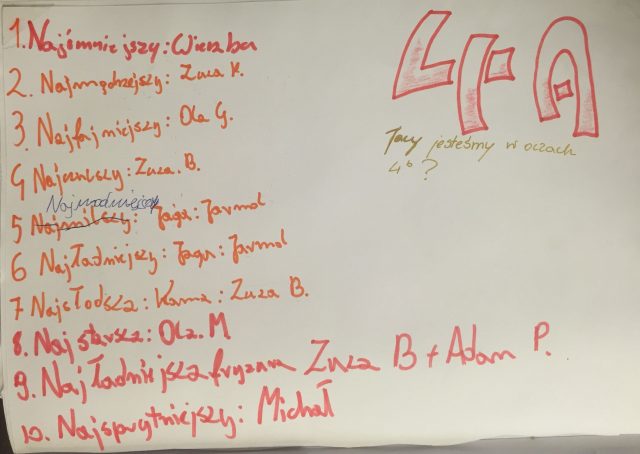 1. Najśmniejszy: Wierzba
2. Najmądrzejszy: Zuza K.
3 Najfajniejszy: Ola G.
4 Zuza. B.
Najmodniejsza
5 Najmilszy: Jaga: Jarmol
6 Najładniejszy: Jaga: Jarmol
7 Najsłodsza: Kama: Zuza B.
8. Najstarsza: Ola. M.
9. Najładniejsza fryzura Zuza B + Adam P.
10. Najsprytniejszy: Michał
4FA
Jacy jesteśmy w oczach
4b ?